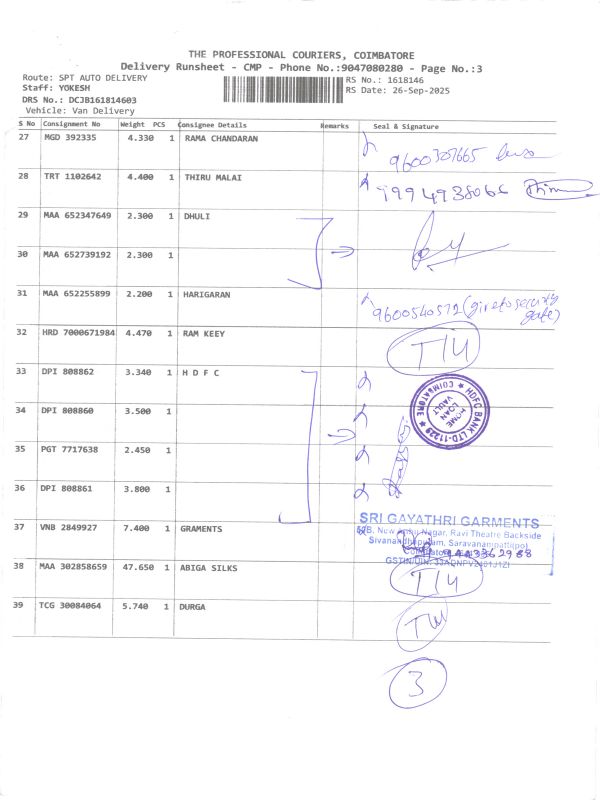 THE PROFESSIONAL COURIERS, COIMBATORE
Delivery Runsheet - CMP - Phone No.:9047080280 - Page No.:3
Route: SPT AUTO DELIVERY RS No.: 1618146
Staff: YOKESH RS Date: 26-Sep-2025
DRS No.: DCJB161814603
Vehicle: Van Delivery
S No Consignment No Weight PCS Consignee Details Remarks Seal & Signature
27 MGD 392335 4.330 1 RAMA CHANDARAN
9600307665
28 TRT 1102642 4.400 1 THIRU MALAI
9994938066
29 MAA 652347649 2.300 1 DHULI
30 MAA 652739192 2.300 1
31 MAA 652255899 2.200 1 HARIGARAN
9600540572 (give to security gate)
32 HRD 7000671984 4.470 1 RAM KEEY
33 DPI 808862 3.340 1 H D F C
HDFC BANK LTD-11229 * COIMBATORE *
HOME LOAN VAULT
34 DPI 808860 3.500 1
35 PGT 7717638 2.450 1
36 DPI 808861 3.800 1
37 VNB 2849927 7.400 1 GRAMENTS
SRI GAYATHRI GARMENTS
Nagar, Ravi Theatre Backside
Sivanandhapuram, Saravanampatti(po)
GSTIN/DIN:
38 MAA 302858659 47.650 1 ABIGA SILKS
39 TCG 30084064 5.740 1 DURGA
3